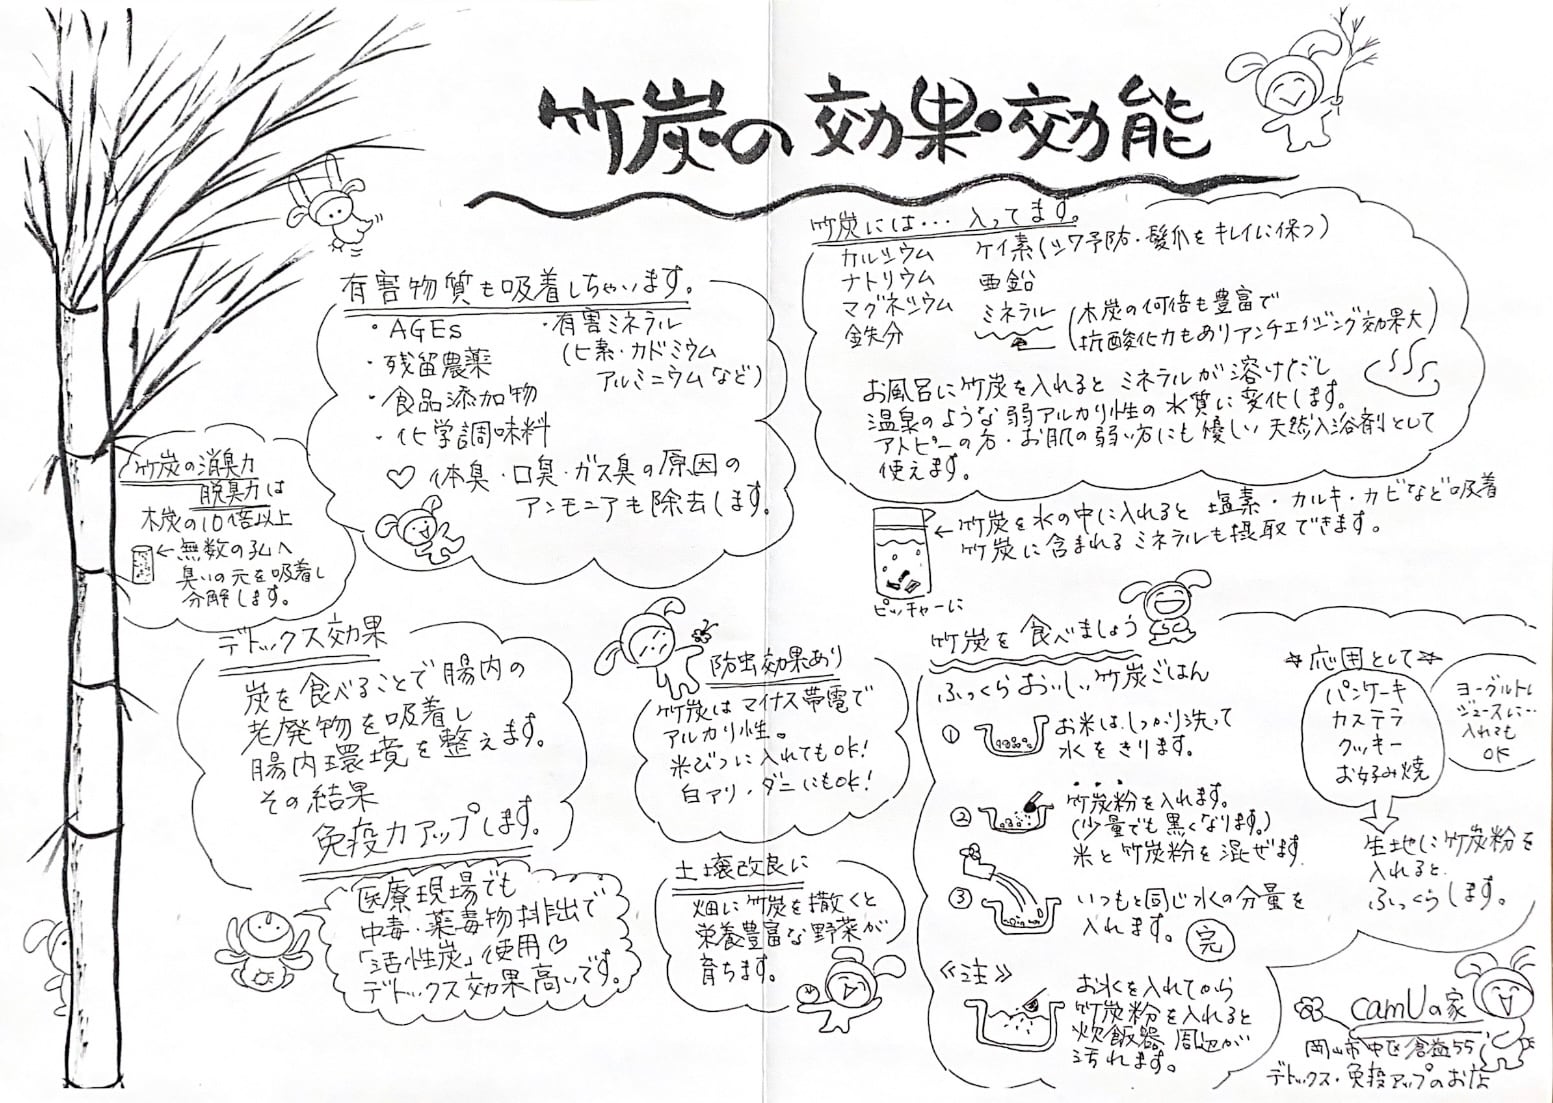 竹炭の効果・効能
竹炭には…入ってます。
カルシウム
ナトリウム
マグネシウム
鉄分
ケイ素(シワ予防・髪爪をキレイに保つ)
亜鉛
ミネラル
(木炭の何倍も豊富で
抗酸化力もありアンチエイジング効果大)
お風呂に竹炭を入れるとミネラルが溶けだし
温泉のような弱アルカリ性の水質に変化します。
アトピーの方・お肌の弱い方にも優しい天然入浴剤として
使えます。
有害物質も吸着しちゃいます。
・AGEs
・残留農薬
・食品添加物
・化学調味料
・有害ミネラル
(ヒ素・カドミウム
アルミニウムなど)
♡体臭・口臭・ガス臭の原因の
アンモニアも除去します。
竹炭の消臭力
脱臭力は
木炭の10倍以上
←無数の孔へ
臭いの元を吸着し
分解します。
←竹炭を水の中に入れると塩素・カルキ・カビなど吸着
竹炭に含まれるミネラルも摂取できます。
ピッチャーに
デトックス効果
炭を食べることで腸内の
老廃物を吸着し
腸内環境を整えます。
その結果
免疫力アップします。
医療現場でも
中毒・薬毒物排出で
「活性炭」使用♡
デトックス効果高いです。
防虫効果あり
竹炭はマイナス帯電で
アルカリ性。
米びつに入れてもOK!
白アリ・ダニにもOK!
土壌改良に
畑に竹炭を撒くと
栄養豊富な野菜が
育ちます。
竹炭を食べましょう
ふっくらおいしい竹炭ごはん
① お米はしっかり洗って
水をきります。
② 竹炭粉を入れます。
(少量でも黒くなります。)
米と竹炭粉を混ぜます
③ いつもと同じ水の分量を
入れます。 完
≪注≫
お水を入れてから
竹炭粉を入れると
炊飯器周辺が
汚れます。
☆応用として☆
パンケーキ
カステラ
クッキー
お好み焼
ヨーグルトや
ジュースに…
入れても
OK
生地に竹炭粉を
入れると
ふっくらします。
camUの家
岡山市中区倉益55
デトックス・免疫アップのお店